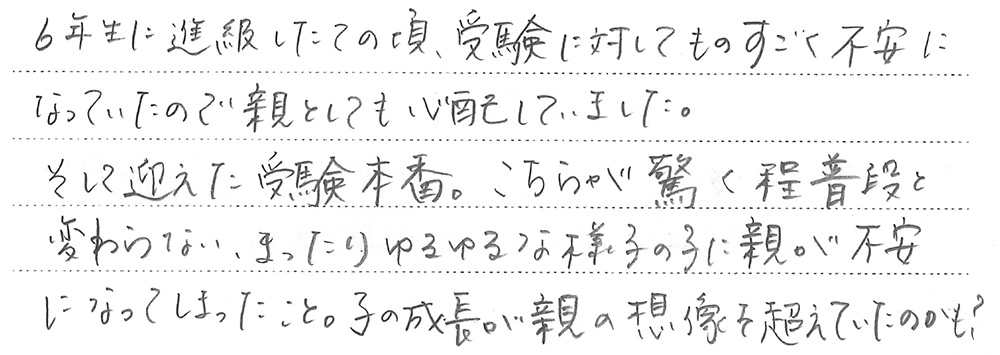 6年生に進級したての頃、受験に対してものすごく不安に
なっていたので親としても心配していました。
そして迎えた受験本番。こちらが驚く程普段と
変わらない、まったりゆるゆるな様子の子に親が不安
になってしまったこと。子の成長が親の想像を超えていたのかも?